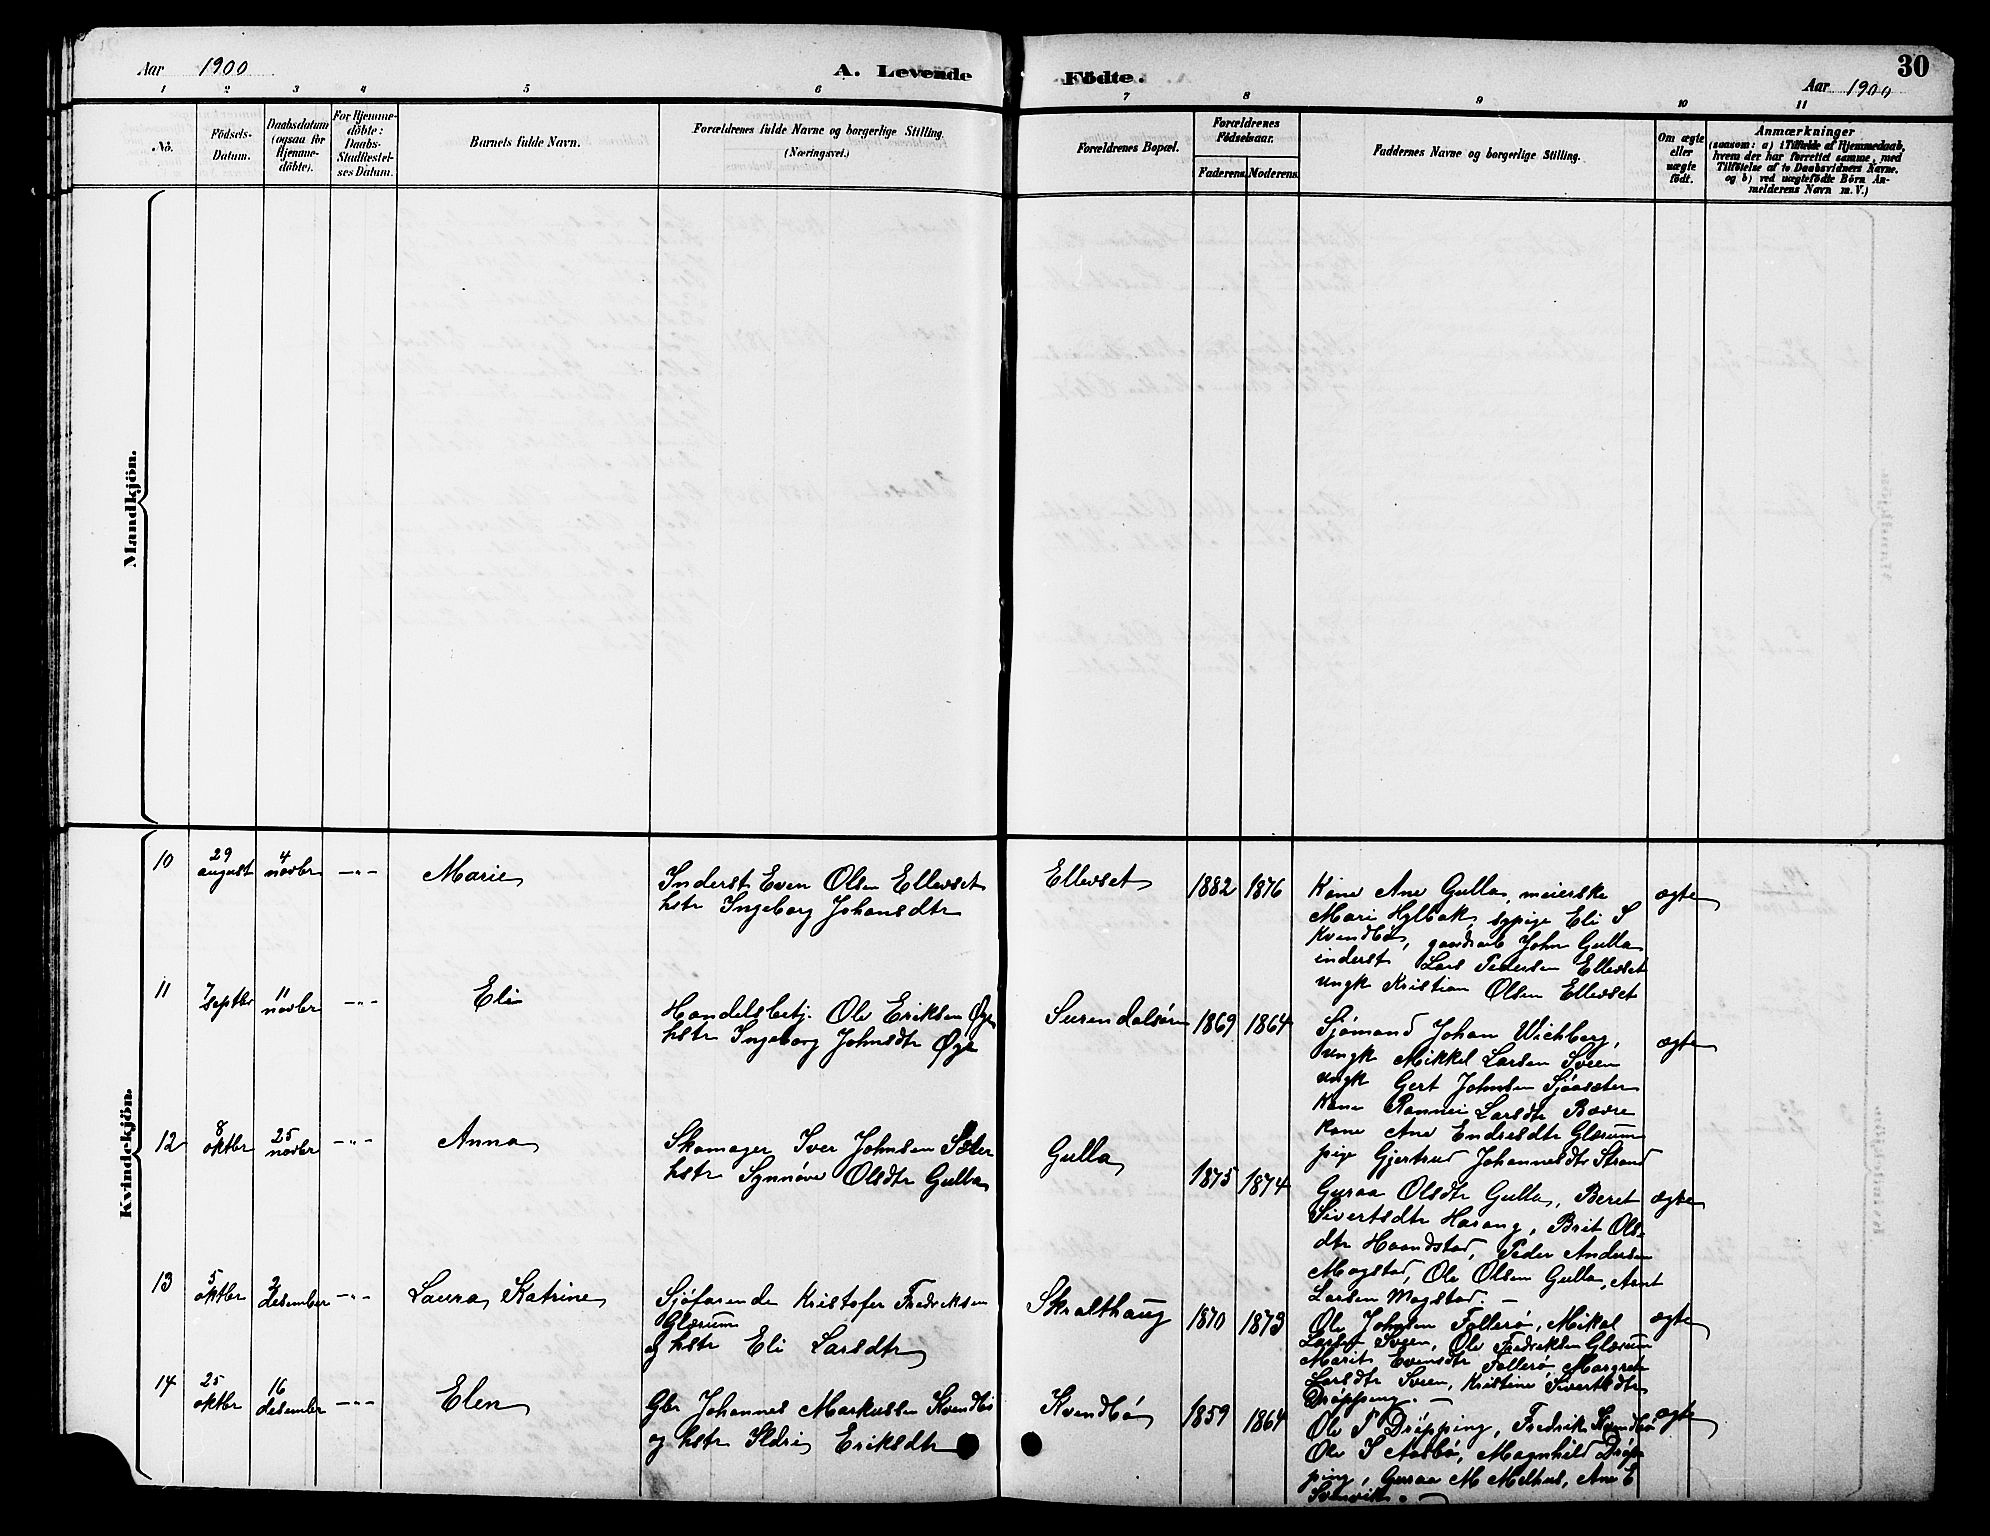 Aar 1900
A. Levende Födte.
30
Aar 1900
1 2 3 4 5 6 7 8 9 10 11
No.
Födsels-Datum.
Daabsdatum (ogsaa for Hjemme-döbte).
For Hjemme-döbte: Daabs-Stadfæstel-ses Datum.
Barnets fulde Navn.
Forældrenes fulde Navne og borgerlige Stilling. (Næringsvei.)
Forældrenes Bopæl.
Forældrenes Födselsaar.
Faderens. Moderens.
Faddernes Navne og borgerlige Stilling.
Om ægte eller uægte födt.
Anmærkninger
(saasom: a) i Tilfælde af Hjemmedaab, hvem der har forrettet samme, med Tilföielse af to Daabsvidners Navne. og b) ved uægtefödte Börn An-melderens Navn m. V.)
Mandkjön.
Kvindekjön.
10
29 august
4 novbr
-"-
Marie
Inderst Even Olsen Ellevset
hstr Ingeborg Johansdtr
Ellevset
1882 1876
Kone Ane Gulla, meierske
Mari Hylbak, sypige Eli S
Kvendbö, gaardarb John Gulla
inderst Lars Pedersen Ellevset
ungk Kristian Olsen Ellevset
ægte
11
7 septbr
11 novbr
-"-
Eli
Handelsbetj. Ole Eriksen Øye
hstr Ingeborg Johnsdtr Øye
Surendalsören
1869 1864
Sjömand Johan Wichberg,
ungk Mikkel Larsen Sveen
ungk Gert Johnsen Sjöasæter
Kone Rannei Larsdtr Bævre
kone Ane Endresdtr Glærum
pige Gjertrud Johannesdtr Strand
ægte
12
8 oktbr
25 novbr
-"-
Anna
Skomager Iver Johnsen Sæter
hstr Synnöve Olsdtr Gulla
Gulla
1875 1874
Guraa Olsdtr Gulla, Beret
Sivertsdtr Harang, Brit Ols-
dtr Haandstad, Peder Andersen
Mogstad, Ole Olsen Gulla, Arnt
Larsen Mogstad. -
ægte
13
5 oktbr
2 desember
-"-
Laura Katrine
Sjöfarende Kristofer Fredriksen
Glærum
og hstr Eli Larsdtr
Skralthaug
1870 1873
Ole Johnsen Follerö, Mikal
Larsen Sveen, Ole Fredriksen Glærum
Marit Evensdtr Follerö, Margrete
Larsdtr Sveen, Kristine Sivertsdtr
Dröpping. -
ægte
14
25 oktbr
16 desember
-"-
Elen
Gbr Johannes Markussen Kvendbö
og hstr Ildri Eriksdtr
Kvendbö
1859 1864
Ole T Dröpping, Fredrik Kvendbö
Ole S Aasbö, Magnhild Dröp-
ping, Guraa M Melhus, Ane E
ægte